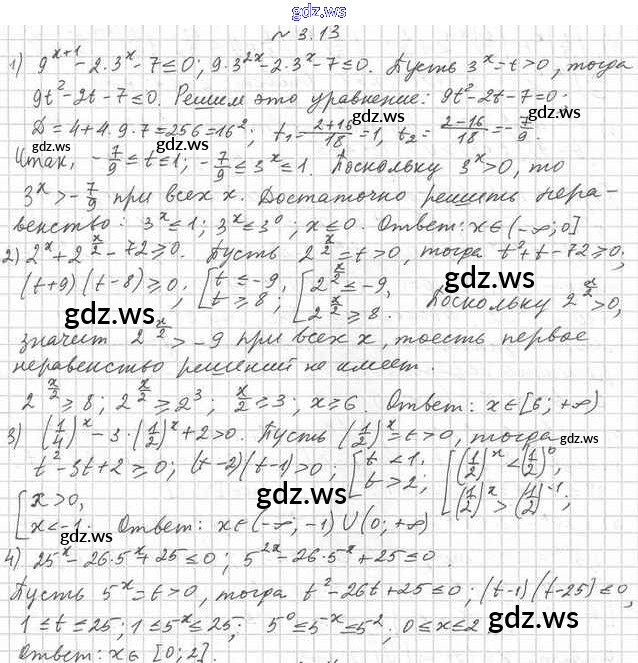 gdz.ws
№ 3.13
1) 9^{x+1} - 2·3^x - 7 ≤ 0; 9·3^{2x} - 2·3^x - 7 ≤ 0. Пусть 3^x = t > 0, тогда
9t² - 2t - 7 ≤ 0. Решим это уравнение: 9t² - 2t - 7 = 0;
D = 4 + 4·9·7 = 256 = 16²; t₁ = (2+16)/18 = 1, t₂ = (2-16)/18 = -7/9.
Итак, -7/9 ≤ t ≤ 1; -7/9 ≤ 3^x ≤ 1. Поскольку 3^x > 0, то
3^x > -7/9 при всех x. Достаточно решить нера-
венство: 3^x ≤ 1; 3^x ≤ 3^0; x ≤ 0. Ответ: x ∈ (-∞; 0]
2) 2^x + 2^{x/2} - 72 ≥ 0. Пусть 2^{x/2} = t > 0, тогда t² + t - 72 ≥ 0;
(t+9)(t-8) ≥ 0; [t ≤ -9, t ≥ 8; [2^{x/2} ≤ -9, 2^{x/2} ≥ 8. Поскольку 2^{x/2} > 0,
gdz.ws
gdz.ws
значит 2^{x/2} > -9 при всех x, тоесть первое
неравенство решений не имеет.
2^{x/2} ≥ 8; 2^{x/2} ≥ 2³; x/2 ≥ 3; x ≥ 6. Ответ: x ∈ [6; +∞)
gdz.ws
3) (1/4)^x - 3·(1/2)^x + 2 > 0. Пусть (1/2)^x = t > 0, тогда
t² - 3t + 2 ≥ 0; (t-2)(t-1) > 0; [t < 1, t > 2; [(1/2)^x < (1/2)^0, (1/2)^x > (1/2)^{-1};
gdz.ws
[x > 0, x < -1. Ответ: x ∈ (-∞, -1) ∪ (0; +∞)
4) 25^{-x} - 26·5^{-x} + 25 ≤ 0; 5^{-2x} - 26·5^{-x} + 25 ≤ 0.
Пусть 5^{-x} = t > 0, тогда t² - 26t + 25 ≤ 0; (t-1)(t-25) ≤ 0,
1 ≤ t ≤ 25; 1 ≤ 5^{-x} ≤ 25; 5^0 ≤ 5^{-x} ≤ 5²; 0 ≤ x ≤ 2
gdz.ws
Ответ: x ∈ [0; 2].
gdz.ws